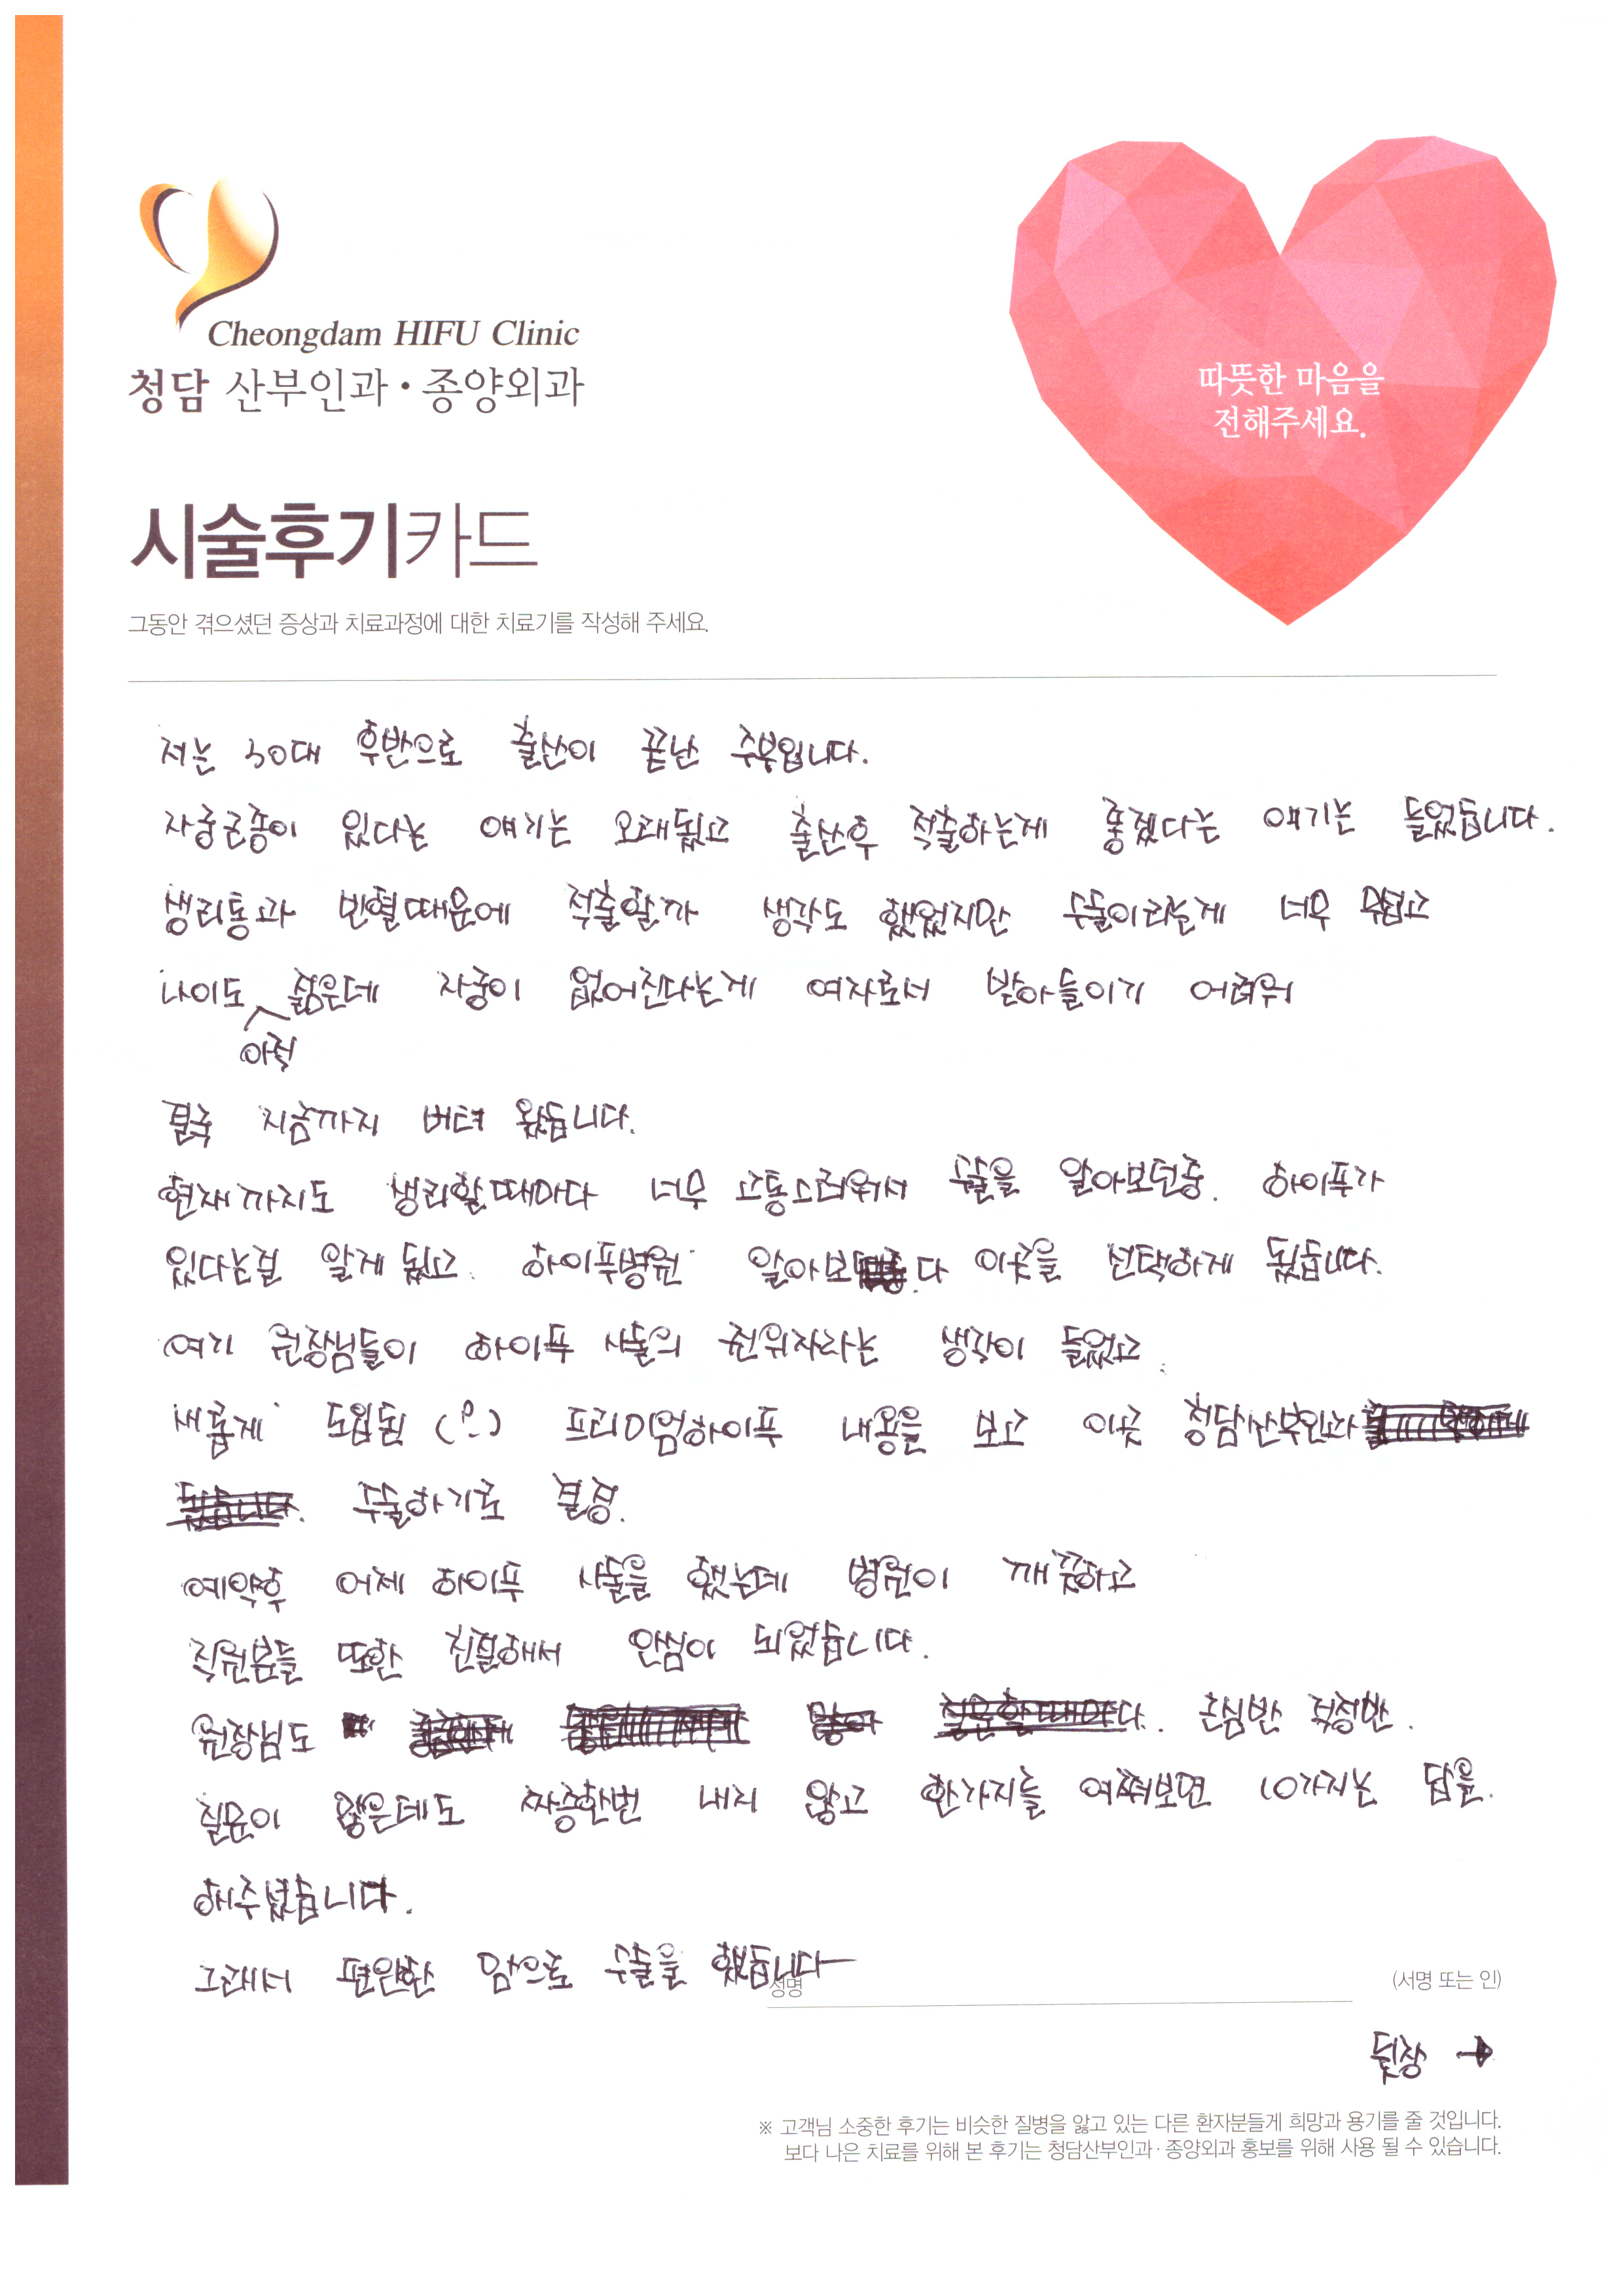 Cheongdam HIFU Clinic
청담 산부인과·종양외과
따뜻한 마음을
전해주세요.
시술후기카드
그동안 겪으셨던 증상과 치료과정에 대한 치료기를 작성해 주세요.
저는 30대 후반으로 출산이 끝난 주부입니다.
자궁근종이 있다는 얘기는 오래됐고 출산후 적출하는게 좋겠다는 얘기는 들었습니다.
생리통과 빈혈때문에 적출할까 생각도 했었지만 수술이라는게 너무 무섭고
나이도 젊은데 자궁이 없어진다는게 여자로서 받아들이기 어려워
아직
결국 지금까지 버텨 왔습니다.
현재까지도 생리할때마다 너무 고통스러워서 수술을 알아보던중. 하이푸가
있다는걸 알게 됐고. 하이푸병원 알아보다 이곳을 선택하게 됐습니다.
여기 원장님들이 하이푸 시술의 권위자라는 생각이 들었고
새롭게 도입된 (?) 프리미엄하이푸 내용을 보고 이곳 청담산부인과
수술하기로 결정.
예약후 어제 하이푸 시술을 했는데 병원이 깨끗하고
직원분들 또한 친절해서 안심이 되었습니다.
원장님도 근심반 걱정반.
질문이 많은데도 짜증한번 내지 않고 한가지를 여쭤보면 10가지는 답을.
해주셨습니다.
그래서 편안한 맘으로 수술을 했습니다
성명 (서명 또는 인)
뒷장 →
※ 고객님 소중한 후기는 비슷한 질병을 앓고 있는 다른 환자분들게 희망과 용기를 줄 것입니다.
보다 나은 치료를 위해 본 후기는 청담산부인과·종양외과 홍보를 위해 사용 될 수 있습니다.